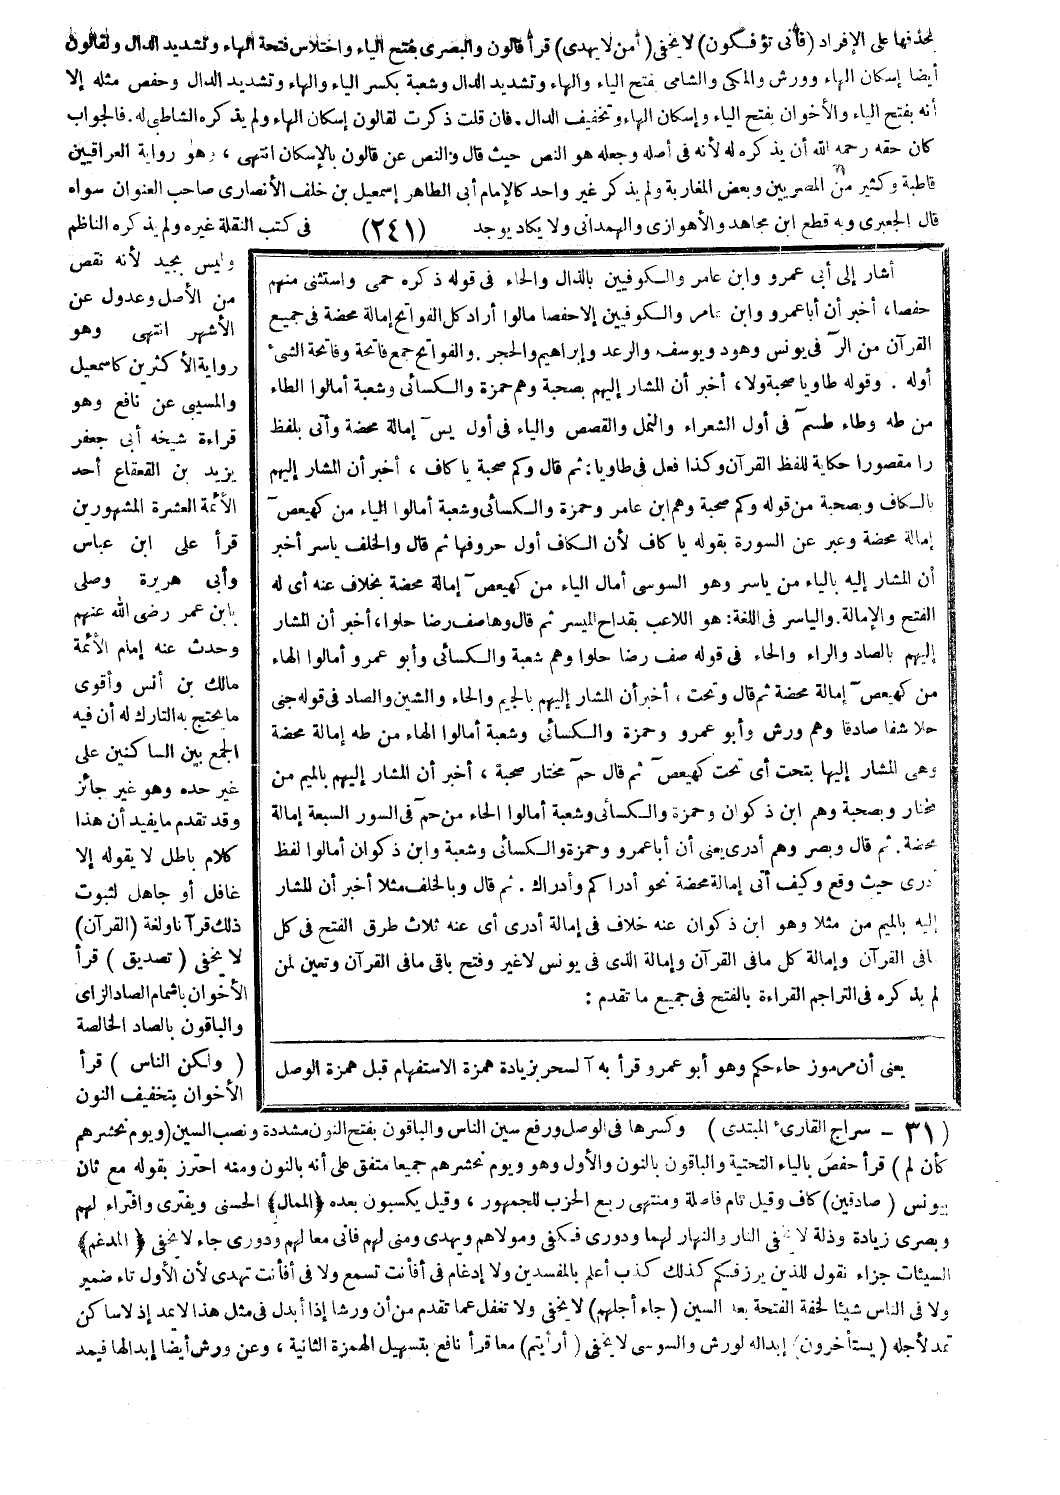 بحذفها على الإفراد (فأنى تؤفكون) لا يخفى (أمن لا يهدى) قرأ قالون والبصرى بفتح الياء واختلاس فتحة الهاء وتشديد الدال ولقالون
أيضا إسكان الهاء وورش والمكى والشامى بفتح الياء والهاء وتشديد الدال وشعبة بكسر الياء والهاء وتشديد الدال وحفص مثله إلا
أنه بفتح الياء والأخوان بفتح الياء وإسكان الهاء وتخفيف الدال. فان قلت ذكرت لقالون إسكان الهاء ولم يذكره الشاطبى له. فالجواب
كان حقه رحمه الله أن يذكره له لأنه فى أصله وجعله هو النص حيث قال والنص عن قالون بالإسكان انتهى ، وهو رواية العراقيين
قاطبة وكثير من المصريين وبعض المغاربة ولم يذكر غير واحد كالإمام أبى الطاهر إسمعيل بن خلف الأنصارى صاحب العنوان سواه
قال الجعبرى وبه قطع ابن مجاهد والأهوازى والهمدانى ولا يكاد يوجد (٢٤١) فى كتب النقلة غيره ولم يذكره الناظم
وليس بجيد لأنه نقص
من الأصل وعدول عن
الأشهر انتهى وهو
رواية الأكثرين كاسمعيل
والمسيبى عن نافع وهو
قراءة شيخه أبى جعفر
يزيد بن القعقاع أحد
الأئمة العشرة المشهورين
قرأ على ابن عباس
وأبى هريرة وصلى
بابن عمر رضى الله عنهم
وحدث عنه إمام الأئمة
مالك بن أنس وأقوى
ما يحتج به التارك له أن فيه
الجمع بين الساكنين على
غير حده وهو غير جائز
وقد تقدم ما يفيد أن هذا
كلام باطل لا يقوله إلا
غافل أو جاهل لثبوت
ذلك قرآنا ولغة (القرآن)
لا يخفى (تصديق) قرأ
الأخوان باشمام الصاد الزاى
والباقون بالصاد الخالصة
(ولكن الناس) قرأ
الأخوان بتخفيف النون
أشار إلى أبى عمرو وابن عامر والكوفيين بالذال والحاء فى قوله ذكره حمى واستثنى منهم
حفصا، أخبر أن أبا عمرو وابن عامر والكوفيين إلا حفصا مالوا أراد كل الفواتح إمالة محضة فى جميع
القرآن من الرٓ فى يونس وهود ويوسف والرعد وإبراهيم والحجر. والفواتح جمع فاتحة وفاتحة الشىء
أوله . وقوله طاويا صحبة ولا، أخبر أن المشار إليهم بصحبة وهم حمزة والكسائى وشعبة أمالوا الطاء
من طه وطاء طسمٓ فى أول الشعراء والنمل والقصص والياء فى أول يسٓ إمالة محضة وأتى بلفظ
را مقصورا حكاية للفظ القرآن وكذا فعل فى طاويا: ثم قال وكم صحبة يا كاف ، أخبر أن المشار إليهم
بالكاف وبصحبة من قوله وكم صحبة وهم ابن عامر وحمزة والكسائى وشعبة أمالوا الياء من كهيعصٓ
إمالة محضة وعبر عن السورة بقوله يا كاف لأن الكاف أول حروفها ثم قال والخلف ياسر أخبر
أن المشار إليه بالياء من ياسر وهو السوسى أمال الياء من كهيعصٓ إمالة محضة بخلاف عنه أى له
الفتح والإمالة. والياسر فى اللغة: هو اللاعب بقداح الميسر ثم قال وها صف رضا حلوا، أخبر أن المشار
إليهم بالصاد والراء والحاء فى قوله صف رضا حلوا وهم شعبة والكسائى وأبو عمرو أمالوا الهاء
من كهيعصٓ إمالة محضة ثم قال وتحت ، أخبر أن المشار إليهم بالجيم والحاء والشين والصاد فى قوله جنى
حلا شفا صادقا وهم ورش وأبو عمرو وحمزة والكسائى وشعبة أمالوا الهاء من طه إمالة محضة
وهى المشار إليها بتحت أى تحت كهيعصٓ ثم قال حمٓ مختار صحبة ، أخبر أن المشار إليهم بالميم من
مختار وبصحبة وهم ابن ذكوان وحمزة والكسائى وشعبة أمالوا الحاء من حمٓ فى السور السبعة إمالة
محضة. ثم قال وبصر وهم أدرى يعنى أن أبا عمرو وحمزة والكسائى وشعبة وابن ذكوان أمالوا لفظ
أدرى حيث وقع وكيف أتى إمالة محضة نحو أدراكم وأدراك . ثم قال وبالخلف مثلا أخبر أن المشار
إليه بالميم من مثلا وهو ابن ذكوان عنه خلاف فى إمالة أدرى أى عنه ثلاث طرق الفتح فى كل
مافى القرآن وإمالة كل مافى القرآن وإمالة الذى فى يونس لاغير وفتح باقى مافى القرآن وتعين لمن
لم يذكره فى التراجم القراءة بالفتح فى جميع ما تقدم :
يعنى أن مرموز حاء حكم وهو أبو عمرو قرأ به آلسحر بزيادة همزة الاستفهام قبل همزة الوصل
(٣١ - سراج القارىء المبتدى) وكسرها فى الوصل ورفع سين الناس والباقون بفتح النون مشددة ونصب السين (ويوم نحشرهم
كأن لم) قرأ حفص بالياء التحتية والباقون بالنون والأول وهو ويوم نحشرهم جميعا متفق على أنه بالنون ومنه احترز بقوله مع ثان
بيونس (صادقين) كاف وقيل تام فاصلة ومنتهى ربع الحزب للجمهور ، وقيل يكسبون بعده ﴿الممال﴾ الحسنى ويفترى وافتراء لهم
وبصرى زيادة وذلة لا يخفى النار والنهار لهما ودورى فكفى ومولاهم ويهدى ومتى لهم فأنى معا لهم ودورى جاء لا يخفى ﴿المدغم﴾
السيئات جزاء نقول للذين يرزقكم كذلك كذب أعلم بالمفسدين ولا إدغام فى أفأنت تسمع ولا فى أفأنت تهدى لأن الأول تاء ضمير
ولا فى الناس شيئا لخفة الفتحة بعد السين (جاء أجلهم) لا يخفى ولا تغفل عما تقدم من أن ورشا إذا أبدل فى مثل هذا لا يمد إذ لا ساكن
تمد لأجله (يستأخرون) إبداله لورش والسوسى لا يخفى (أرأيتم) معا قرأ نافع بتسهيل الهمزة الثانية ، وعن ورش أيضا إبدالها فيمد